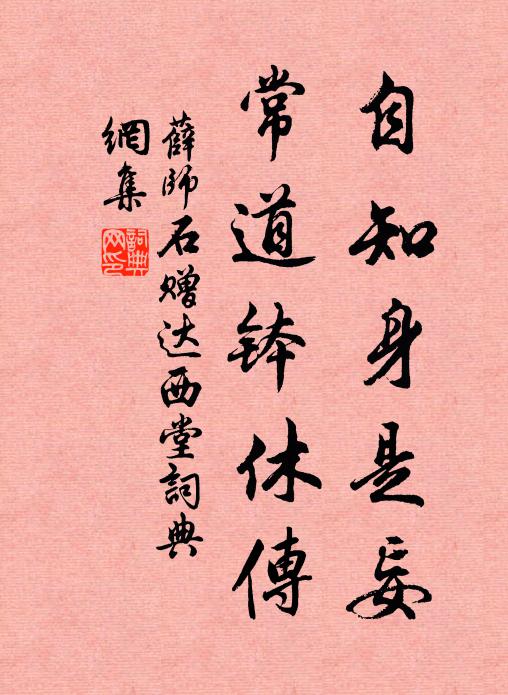 自知身是妄
常道钵休傳
薛師石赠达西堂詞典
網集
詞典網印